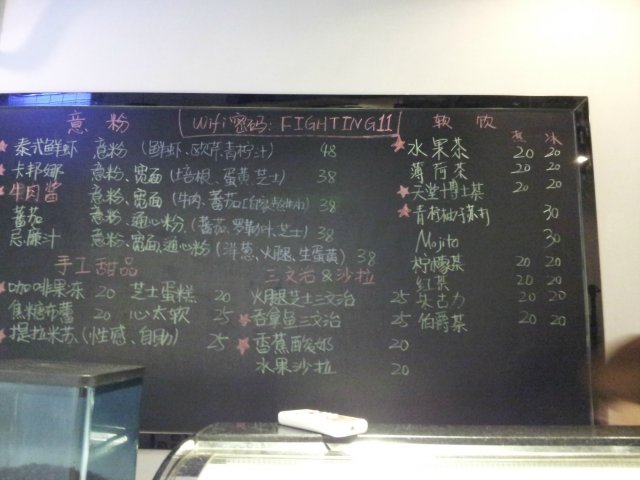 意粉
WiFi密码: FIGHTING11
软饮
热 冰
泰式鲜虾 意粉 (鲜虾、欧芹、青柠汁) 48
卡邦娜 意粉、宽面 (培根、蛋黄、芝士) 38
牛肉酱 意粉、宽面 (牛肉、番茄 38
番茄 意粉、通心粉 (番茄、罗勒叶、芝士) 38
忌廉汁 意粉、宽面、通心粉 (洋葱、火腿、生蛋黄) 38
手工甜品
咖啡果冻 20 芝士蛋糕 20
焦糖布蕾 20 心太软 25
提拉米苏 (性感、自助) 25
三文治&沙拉
火腿芝士三文治 25
吞拿鱼三文治 25
香蕉酸奶 20
水果沙拉 20
水果茶 20 20
薄荷茶 20 20
天堂博士茶 20 20
青柠柚子苏打 30
Mojito 30
柠檬茶 20 20
红茶 20 20
朱古力 20 20
伯爵茶 20 20